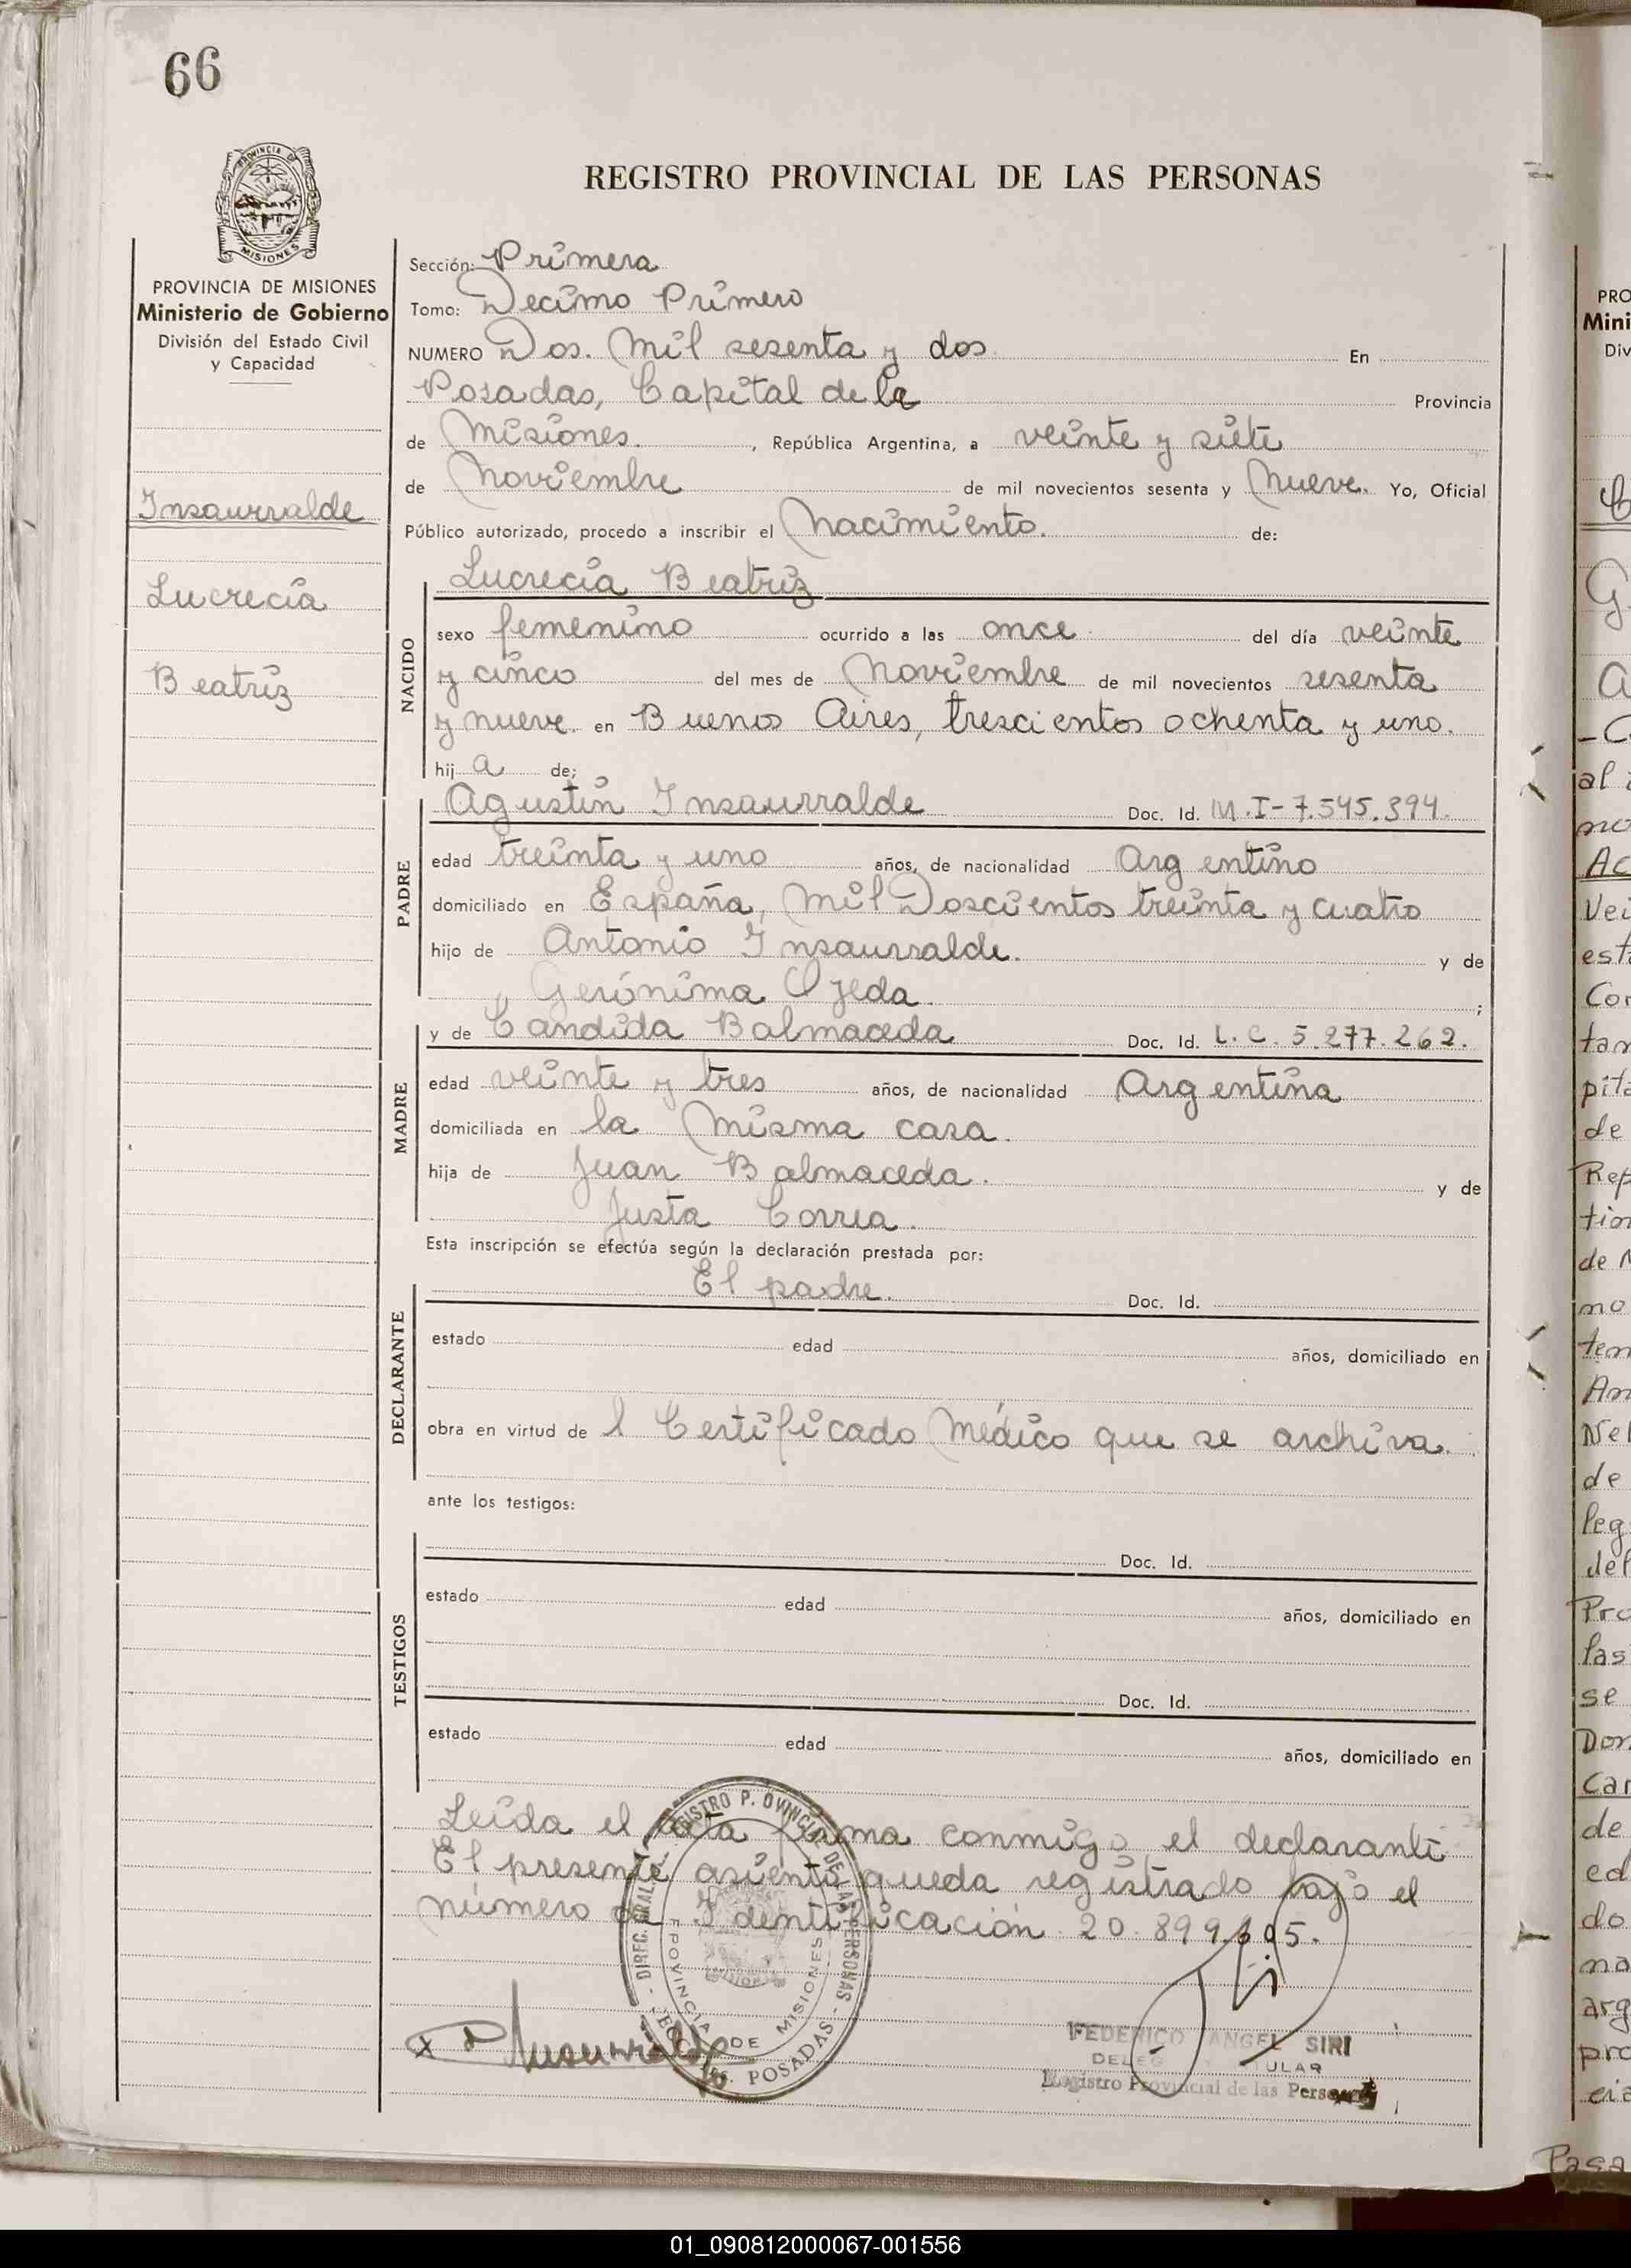 66
PROVINCIA DE
MISIONES
REGISTRO PROVINCIAL DE LAS PERSONAS
PROVINCIA DE MISIONES
Ministerio de Gobierno
División del Estado Civil
y Capacidad
Insaurralde
Lucrecia
Beatriz
Sección: Primera
Tomo: Decimo Primero
NUMERO Dos. Mil sesenta y dos En
Posadas, Capital de la Provincia
de Misiones. , República Argentina, a veinte y siete
de Noviembre de mil novecientos sesenta y Nueve. Yo, Oficial
Público autorizado, procedo a inscribir el Nacimiento. de:
NACIDO
Lucrecia Beatriz
sexo femenino ocurrido a las once del día veinte
y cinco del mes de Noviembre de mil novecientos sesenta
y nueve. en Buenos Aires, trescientos ochenta y uno.
hij a de;
PADRE
Agustin Insaurralde Doc. Id. M.I-7.545.394.
edad treinta y uno años, de nacionalidad Argentino
domiciliado en España, Mil Doscientos treinta y cuatro
hijo de Antonio Insaurralde. y de
Gerónima Ojeda. ;
MADRE
y de Candida Balmaceda Doc. Id. L.C. 5.277.262.
edad veinte y tres años, de nacionalidad Argentina
domiciliada en la Misma casa.
hija de Juan Balmaceda. y de
Justa Correa.
Esta inscripción se efectúa según la declaración prestada por:
DECLARANTE
El padre. Doc. Id.
estado edad años, domiciliado en
obra en virtud de l Certificado Médico que se archiva.
ante los testigos:
TESTIGOS
Doc. Id.
estado edad años, domiciliado en
Doc. Id.
estado edad años, domiciliado en
Leida el acta firma conmigo el declarante
El presente asiento queda registrado bajo el
número de Identificación 20.899.605.
PROVINCIA DE MISIONES
POSADAS
Insaurralde
FEDERICO ANGEL SIRI
Registro Provincial de las Personas
01_090812000067-001556